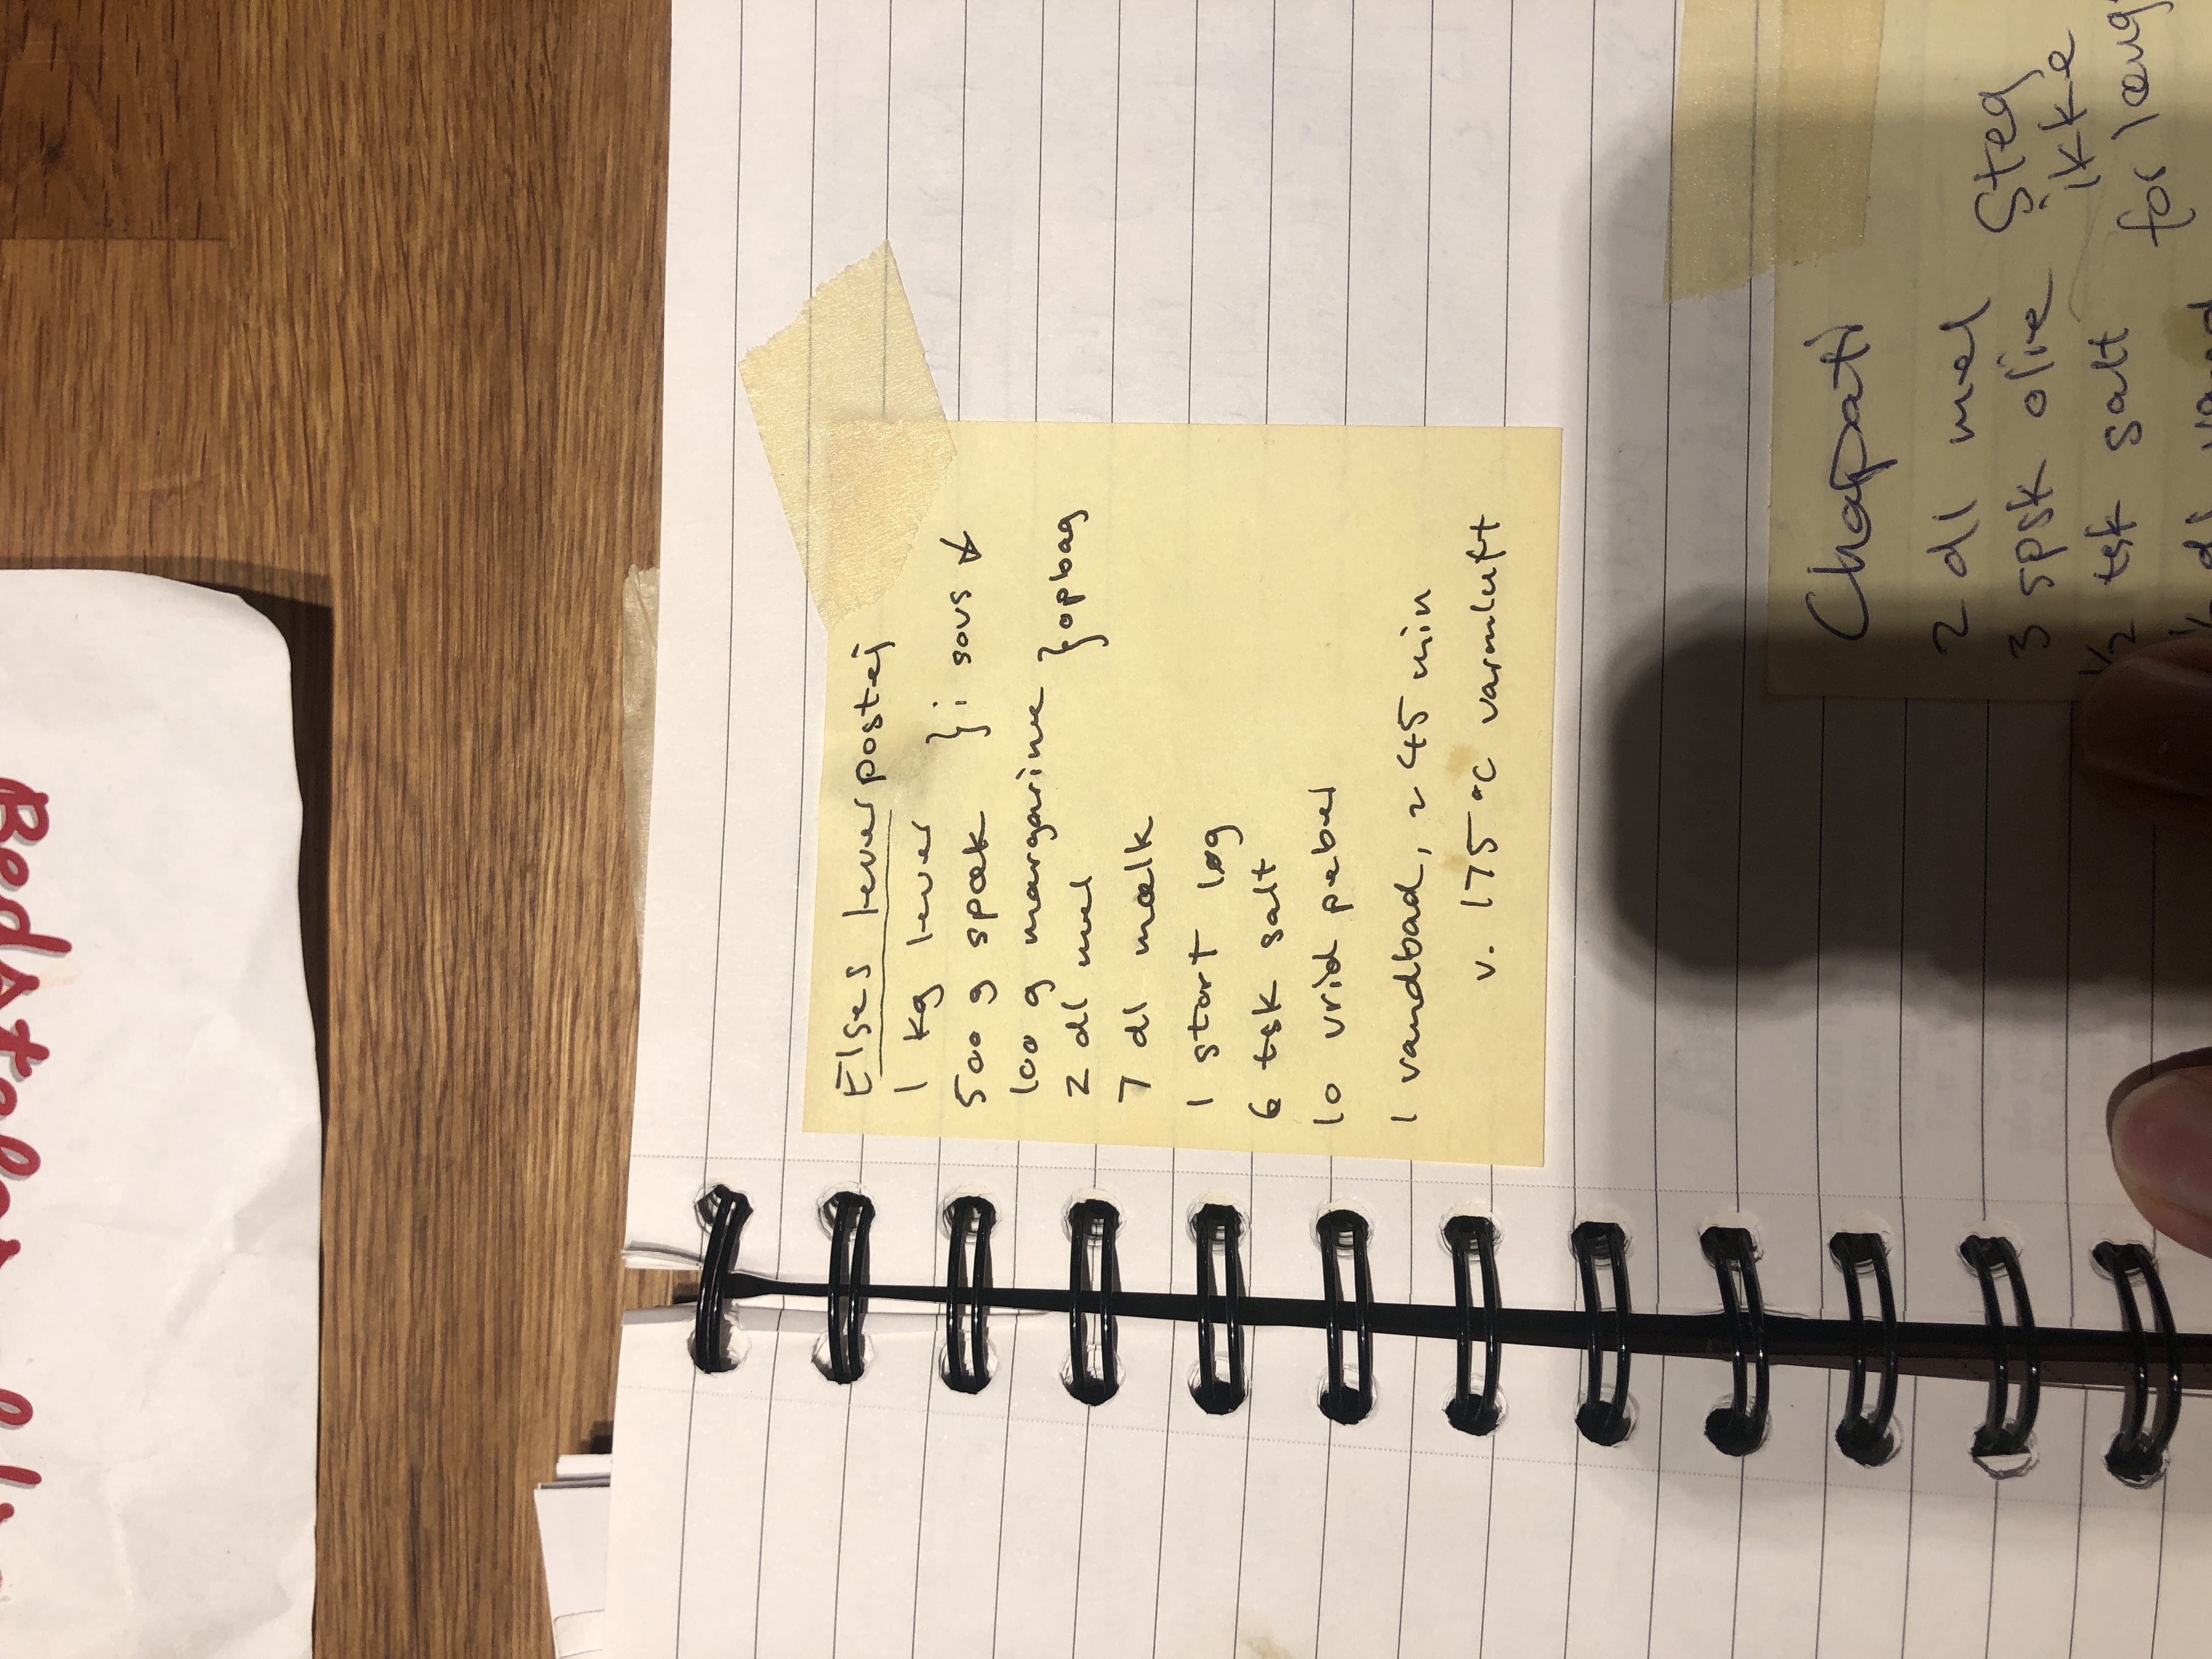 Elses leverpostej
1 kg lever
500 g spæk } i sovs
100 g margarine
2 dl mel } opbag
7 dl mælk
1 stort løg
6 tsk salt
10 vrid peber
1 vandbad, ~ 45 min
v. 175 °C varmluft
Chapati
2 dl mel
3 spsk olie
1/2 tsk salt
dl vand
Steg
ikke
for